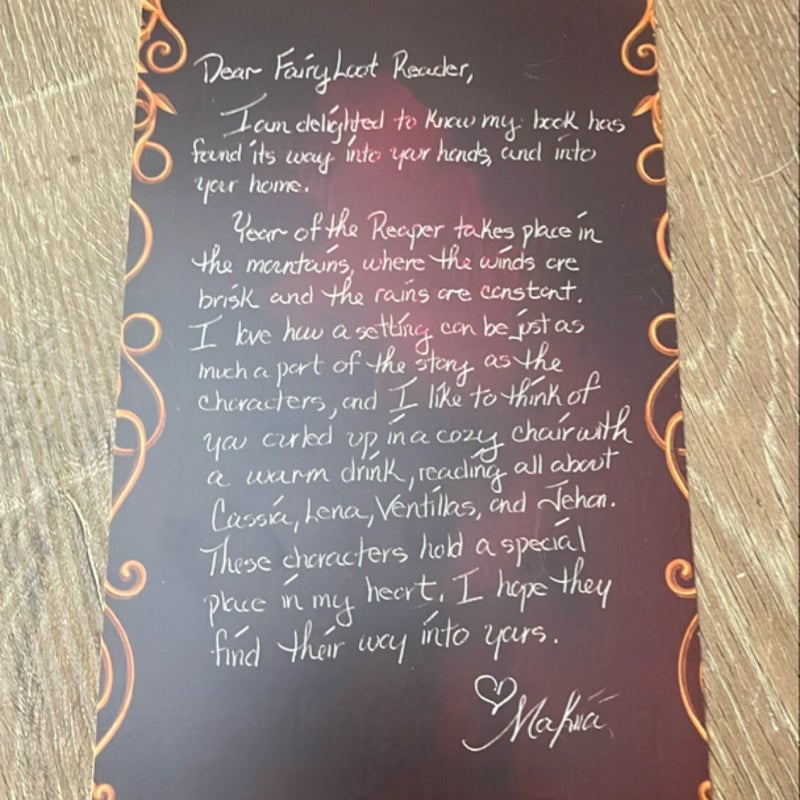 Dear FairyLoot Reader,
I am delighted to know my book has
found its way into your hands, and into
your home.
Year of the Reaper takes place in
the mountains, where the winds are
brisk and the rains are constant.
I love how a setting can be just as
much a part of the story as the
characters, and I like to think of
you curled up in a cozy chair with
a warm drink, reading all about
Cassia, Lena, Ventillas, and Jehan.
These characters hold a special
place in my heart. I hope they
find their way into yours.
Makiia